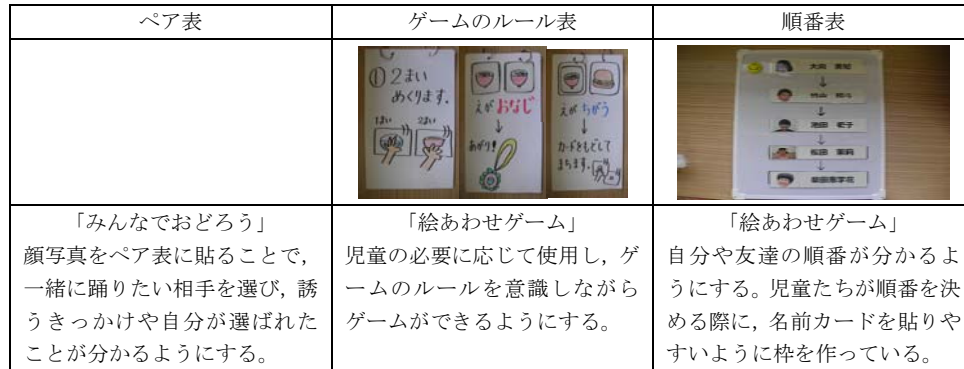 ペア表
ゲームのルール表
順番表
① 2まい
めくります.
1まい 2まい
えが おなじ
↓
あがり!
えが ちがう
↓
カードをもどして
まちます.
↓
↓
↓
↓
「みんなでおどろう」
顔写真をペア表に貼ることで，
一緒に踊りたい相手を選び，誘
うきっかけや自分が選ばれた
ことが分かるようにする。
「絵あわせゲーム」
児童の必要に応じて使用し，ゲ
ームのルールを意識しながら
ゲームができるようにする。
「絵あわせゲーム」
自分や友達の順番が分かるよ
うにする。児童たちが順番を決
める際に，名前カードを貼りや
すいように枠を作っている。